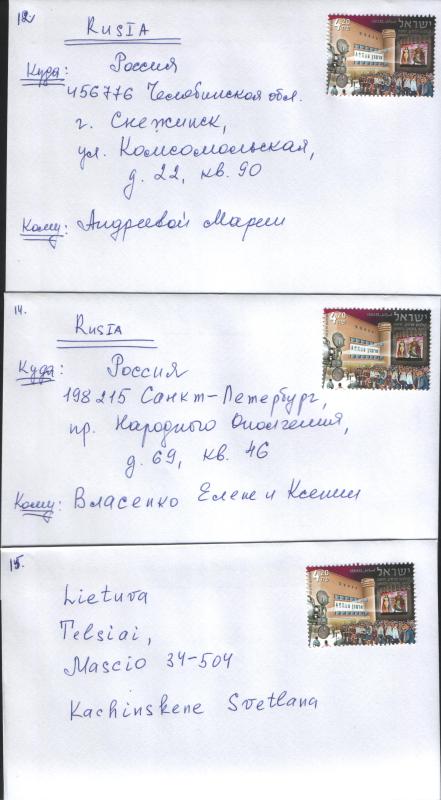 12.
RUSIA
4.20
ישראל
ISRAEL
Куда: Россия
456776 Челябинская обл.
г. Снежинск,
ул. Комсомольская,
д. 22, кв. 90
Кому: Андреевой Марии
14.
RUSIA
4.20
ישראל
ISRAEL
Куда: Россия
198215 Санкт-Петербург,
пр. Народного Ополчения,
д. 69, кв. 46
Кому: Власенко Елене и Ксении
15.
4.20
ישראל
ISRAEL
Lietuva
Telsiai,
Mascio 34-504
Kachinskene Svetlana